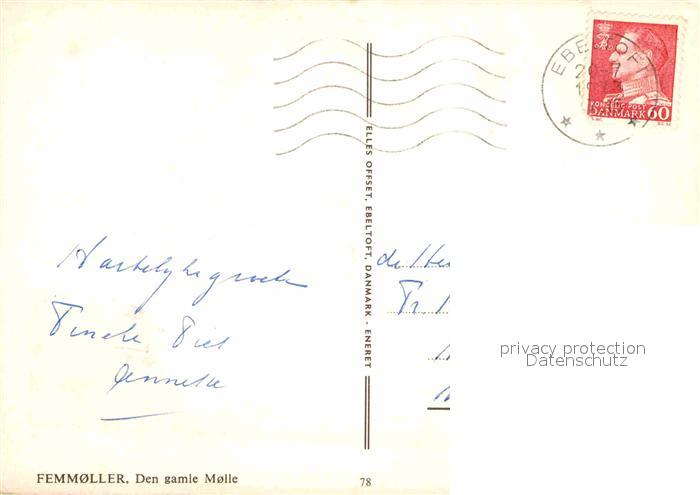 EBELTOFT
KONGELIG POST
DANMARK 60
ELLES OFFSET, EBELTOFT, DANMARK - ENERET
Hartelijke groeten
Tineke Piet
Anneke
de
privacy protection
Datenschutz
FEMMØLLER, Den gamle Mølle
78